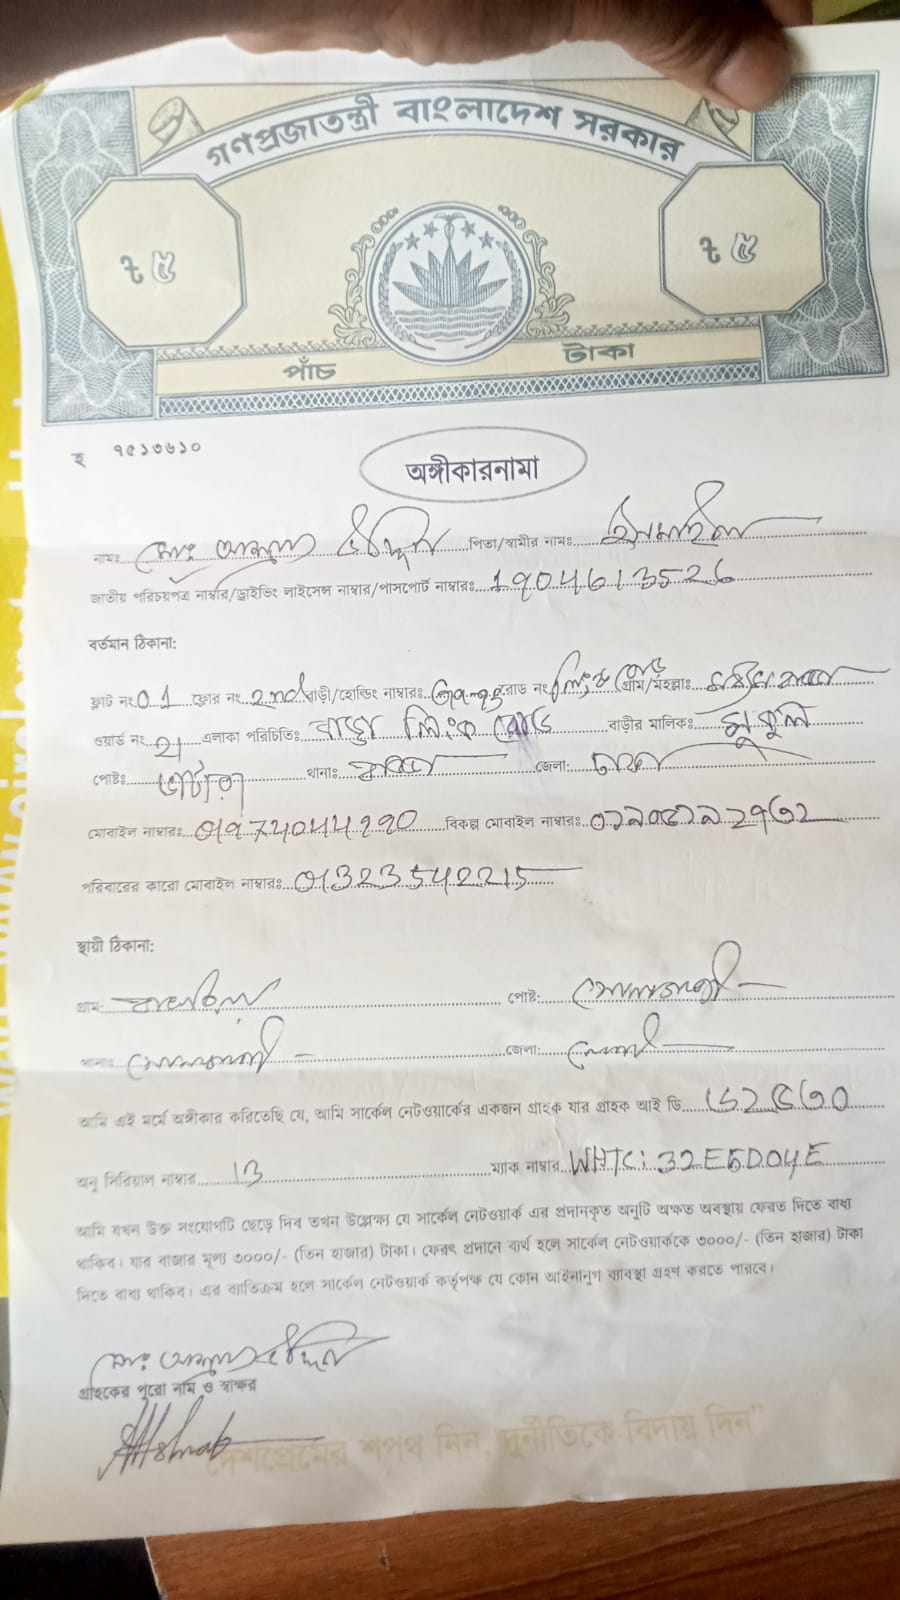 গণপ্রজাতন্ত্রী বাংলাদেশ সরকার
৳ ৫ ৳ ৫
পাঁচ টাকা
হ ৭৫১৩৬১০
অঙ্গীকারনামা
নামঃ মোঃ পিতা/স্বামীর নাম: ইসমাইল
জাতীয় পরিচয়পত্র নাম্বার/ড্রাইভিং লাইসেন্স নাম্বার/পাসপোর্ট নাম্বারঃ 1904613526
বর্তমান ঠিকানা:
ফ্লাট নং 01 ফ্লোর নং 2nd বাড়ী/হোল্ডিং নাম্বারঃ রোড নং লিংক রোড গ্রাম/মহল্লাঃ
ওয়ার্ড নং 21 এলাকা পরিচিতিঃ বাড্ডা লিংক রোড বাড়ীর মালিকঃ মুকুল
পোষ্টঃ থানাঃ বাড্ডা জেলা: ঢাকা
মোবাইল নাম্বারঃ বিকল্প মোবাইল নাম্বারঃ
পরিবারের কারো মোবাইল নাম্বারঃ 01323542215
স্থায়ী ঠিকানা:
গ্রাম: পোষ্ট: সোনাগাজী
থানাঃ সোনাগাজী জেলা: ফেনী
আমি এই মর্মে অঙ্গীকার করিতেছি যে, আমি সার্কেল নেটওয়ার্কের একজন গ্রাহক যার গ্রাহক আই ডি
অনু সিরিয়াল নাম্বার 13 ম্যাক নাম্বার WHTC: 32E5D04E
আমি যখন উক্ত সংযোগটি ছেড়ে দিব তখন উল্লেক্ষ্য যে সার্কেল নেটওয়ার্ক এর প্রদানকৃত অনুটি অক্ষত অবস্থায় ফেরত দিতে বাধ্য
থাকিব। যার বাজার মূল্য ৩০০০/- (তিন হাজার) টাকা। ফেরৎ প্রদানে ব্যর্থ হলে সার্কেল নেটওয়ার্ককে ৩০০০/- (তিন হাজার) টাকা
দিতে বাধ্য থাকিব। এর ব্যতিক্রম হলে সার্কেল নেটওয়ার্ক কর্তৃপক্ষ যে কোন আইনানুগ ব্যবস্থা গ্রহণ করতে পারবে।
মোঃ
গ্রাহকের পুরো নাম ও স্বাক্ষর
দেশপ্রেমের শপথ নিন, দুর্নীতিকে বিদায় দিন"